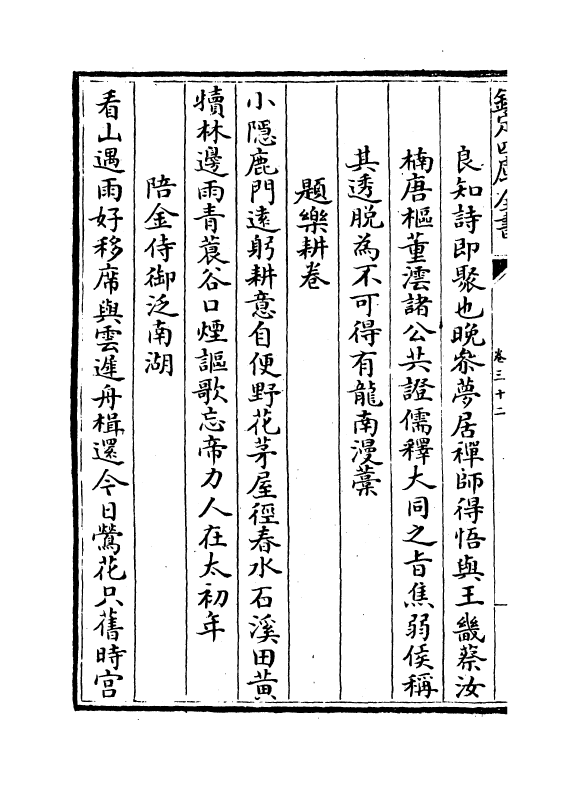 欽定四庫全書
卷三十二
良知詩即聚也晚叅夢居禪師得悟與王畿蔡汝
楠唐樞董澐諸公共證儒釋大同之旨焦弱侯稱
其透脱為不可得有龍南漫藁
題樂耕卷
小隠鹿門遠躬耕意自便野花茅屋徑春水石溪田黄
犢林邊雨青蓑谷口煙謳歌忘帝力人在太初年
陪金侍御泛南湖
看山遇雨好移席與雲遲舟楫還今日鶯花只舊時宫